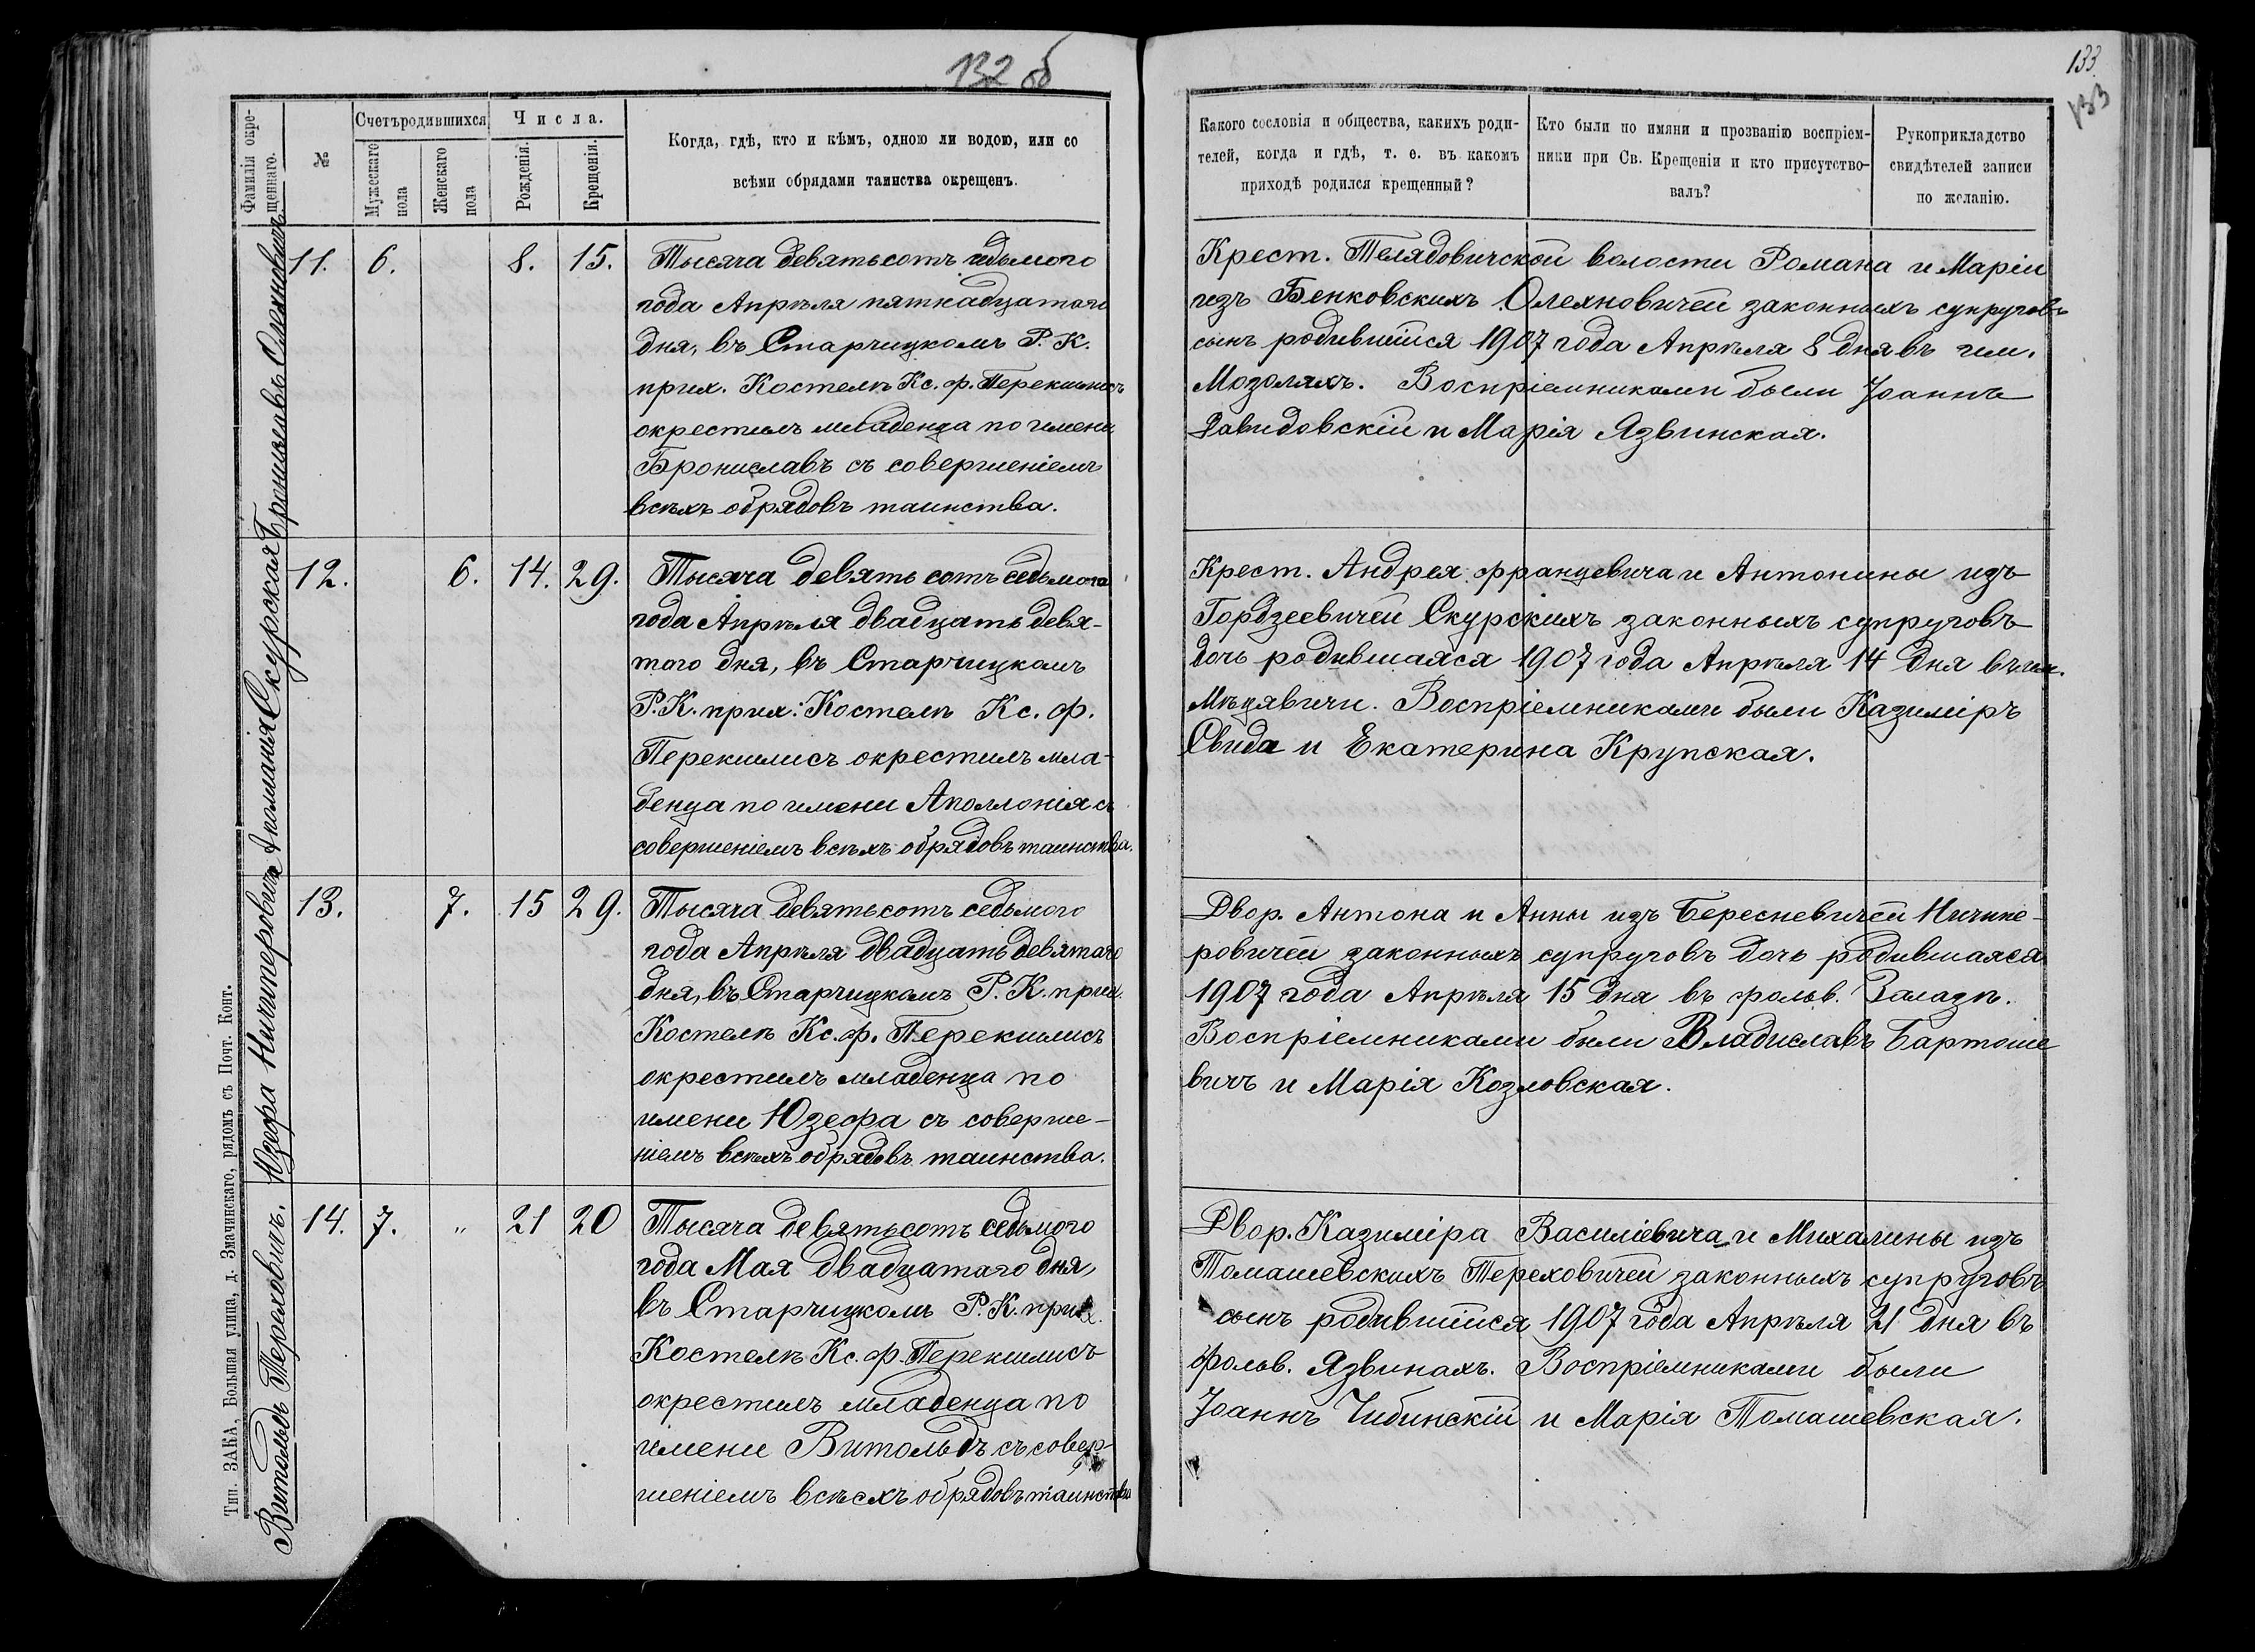 132 об
Фамилія окре-
щеннаго.
№
Счетъ родившихся
Мужескаго
пола
Женскаго
пола
Числа.
Рожденія.
Крещенія.
Когда, гдѣ, кто и кѣмъ, одною ли водою, или со
всѣми обрядами таинства окрещенъ.
Брониславъ Олехновичъ
11. 6. 8. 15.
Тысяча девятьсотъ седьмого
года Апрѣля пятнадцатаго
дня, въ Старчицкомъ Р. К.
прих. Костелѣ Кс. Ф. Перекшлисъ
окрестилъ младенца по имени
Брониславъ съ совершеніемъ
всѣхъ обрядовъ таинства.
Аполианія Скурская
12. 6. 14. 29.
Тысяча девять сотъ седьмого
года Апрѣля двадцать девя-
таго дня, въ Старчицкомъ
Р. К. прих. Костелѣ Кс. Ф.
Перекшлисъ окрестилъ мла-
денца по имени Аполлонія съ
совершеніемъ всѣхъ обрядовъ таинства.
Юзефа Ничипоровичъ
13. 7. 15 29.
Тысяча девятьсотъ седьмого
года Апрѣля двадцать девятаго
дня, въ Старчицкомъ Р. К. прих.
Костелѣ Кс. Ф. Перекшлисъ
окрестилъ младенца по
имени Юзефа съ соверше-
ніемъ всѣхъ обрядовъ таинства.
Витольдъ Тереховичъ.
14. 7. „ 21 20
Тысяча девятьсотъ седьмого
года Мая двадцатаго дня,
въ Старчицкомъ Р. К. прих.
Костелѣ Кс. Ф. Перекшлисъ
окрестилъ младенца по
имени Витольдъ съ совер-
шеніемъ всѣхъ обрядовъ таинства
Тип. ЗАКА, Большая улица, д. Змачинскаго, рядомъ съ Почт. Конт.
133.
133
Какого сословія и общества, какихъ роди-
телей, когда и гдѣ, т. е. въ какомъ
приходѣ родился крещенный?
Кто были по имяни и прозванію воспріем-
ники при Св. Крещеніи и кто присутство-
валъ?
Рукоприкладство
свидѣтелей записи
по желанію.
Крест. Телядовичской волости Романа и Маріи
изъ Бенковскихъ Олехновичей законныхъ супруговъ
сынъ родившійся 1907 года Апрѣля 8 дня въ им.
Мозоляхъ. Воспріемниками были Іоаннъ
Давидовскій и Марія Язвинская.
Крест. Андрея Францевича и Антонины изъ
Гордзеевичей Скурскихъ законныхъ супруговъ
дочь родившаяся 1907 года Апрѣля 14 дня въ им.
Мѣцявичи. Воспріемниками были Казиміръ
Свида и Екатерина Крупская.
Двор. Антона и Анны изъ Бересневичей Ничипе-
ровичей законныхъ супруговъ дочь родившаяся
1907 года Апрѣля 15 дня въ фольв. Залазѣ.
Воспріемниками были Владиславъ Бартоше
вичъ и Марія Козловская.
Двор. Казиміра Василіевича и Михалины изъ
Томашевскихъ Тереховичей законныхъ супруговъ
сынъ родившійся 1907 года Апрѣля 21 дня въ
фольв. Язвинахъ. Воспріемниками были
Іоаннъ Чибинскій и Марія Томашевская.